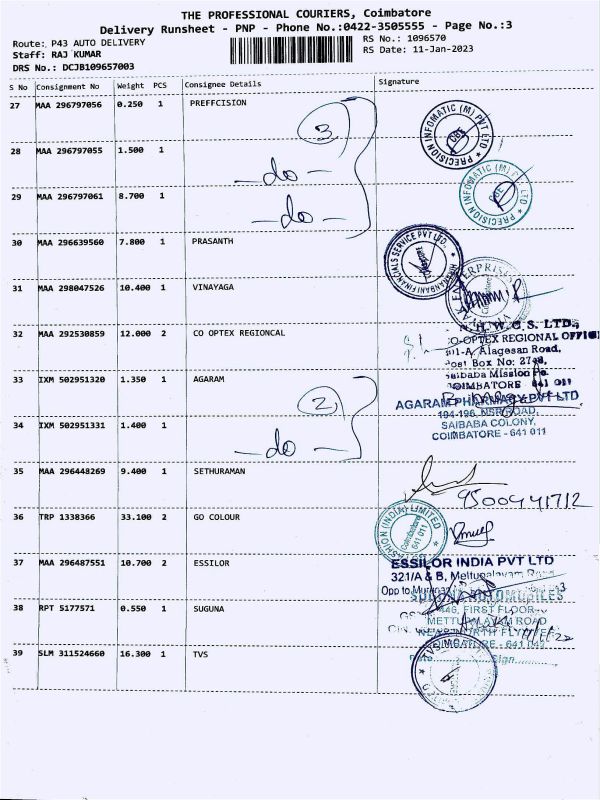 THE PROFESSIONAL COURIERS, Coimbatore
Delivery Runsheet - PNP - Phone No.:0422-3505555 - Page No.:3
Route: P43 AUTO DELIVERY
RS No.: 1096570
Staff: RAJ KUMAR
RS Date: 11-Jan-2023
DRS No.: DCJB109657003
S No Consignment No Weight PCS Consignee Details Signature
27 MAA 296797056 0.250 1 PREFFCISION
3
PRECISION INFOMATIC (M) PVT LTD
CBE
28 MAA 296797055 1.500 1
- do -
PRECISION INFOMATIC (M) PVT LTD
29 MAA 296797061 8.700 1
- do -
30 MAA 296639560 7.800 1 PRASANTH
FINANCIALS SERVICE PVT LTD
31 MAA 298047526 10.400 1 VINAYAGA
ENTERPRISE
32 MAA 292530859 12.000 2 CO OPTEX REGIONCAL
H.W.C.S. LTD.,
CO-OPTEX REGIONAL OFFICE
Alagesan Road,
Post Box No:
Saibaba Mission
COIMBATORE 641 011
33 IXM 502951320 1.350 1 AGARAM
2
AGARAM PHARMACY PVT LTD
194-196, NSR ROAD,
SAIBABA COLONY,
COIMBATORE - 641 011
34 IXM 502951331 1.400 1
- do -
35 MAA 296448269 9.400 1 SETHURAMAN
36 TRP 1338366 33.100 2 GO COLOUR
FASHION (INDIA) LIMITED
Coimbatore
641 011
37 MAA 296487551 10.700 2 ESSILOR
ESSILOR INDIA PVT LTD
321/A & B, Mettupalayam Road
Opp to
38 RPT 5177571 0.550 1 SUGUNA
AUTOMOBILES
446, FIRST FLOOR
METTUPALAYAM ROAD
COIMBATORE - 641
Sign
39 SLM 311524660 16.300 1 TVS
TVS